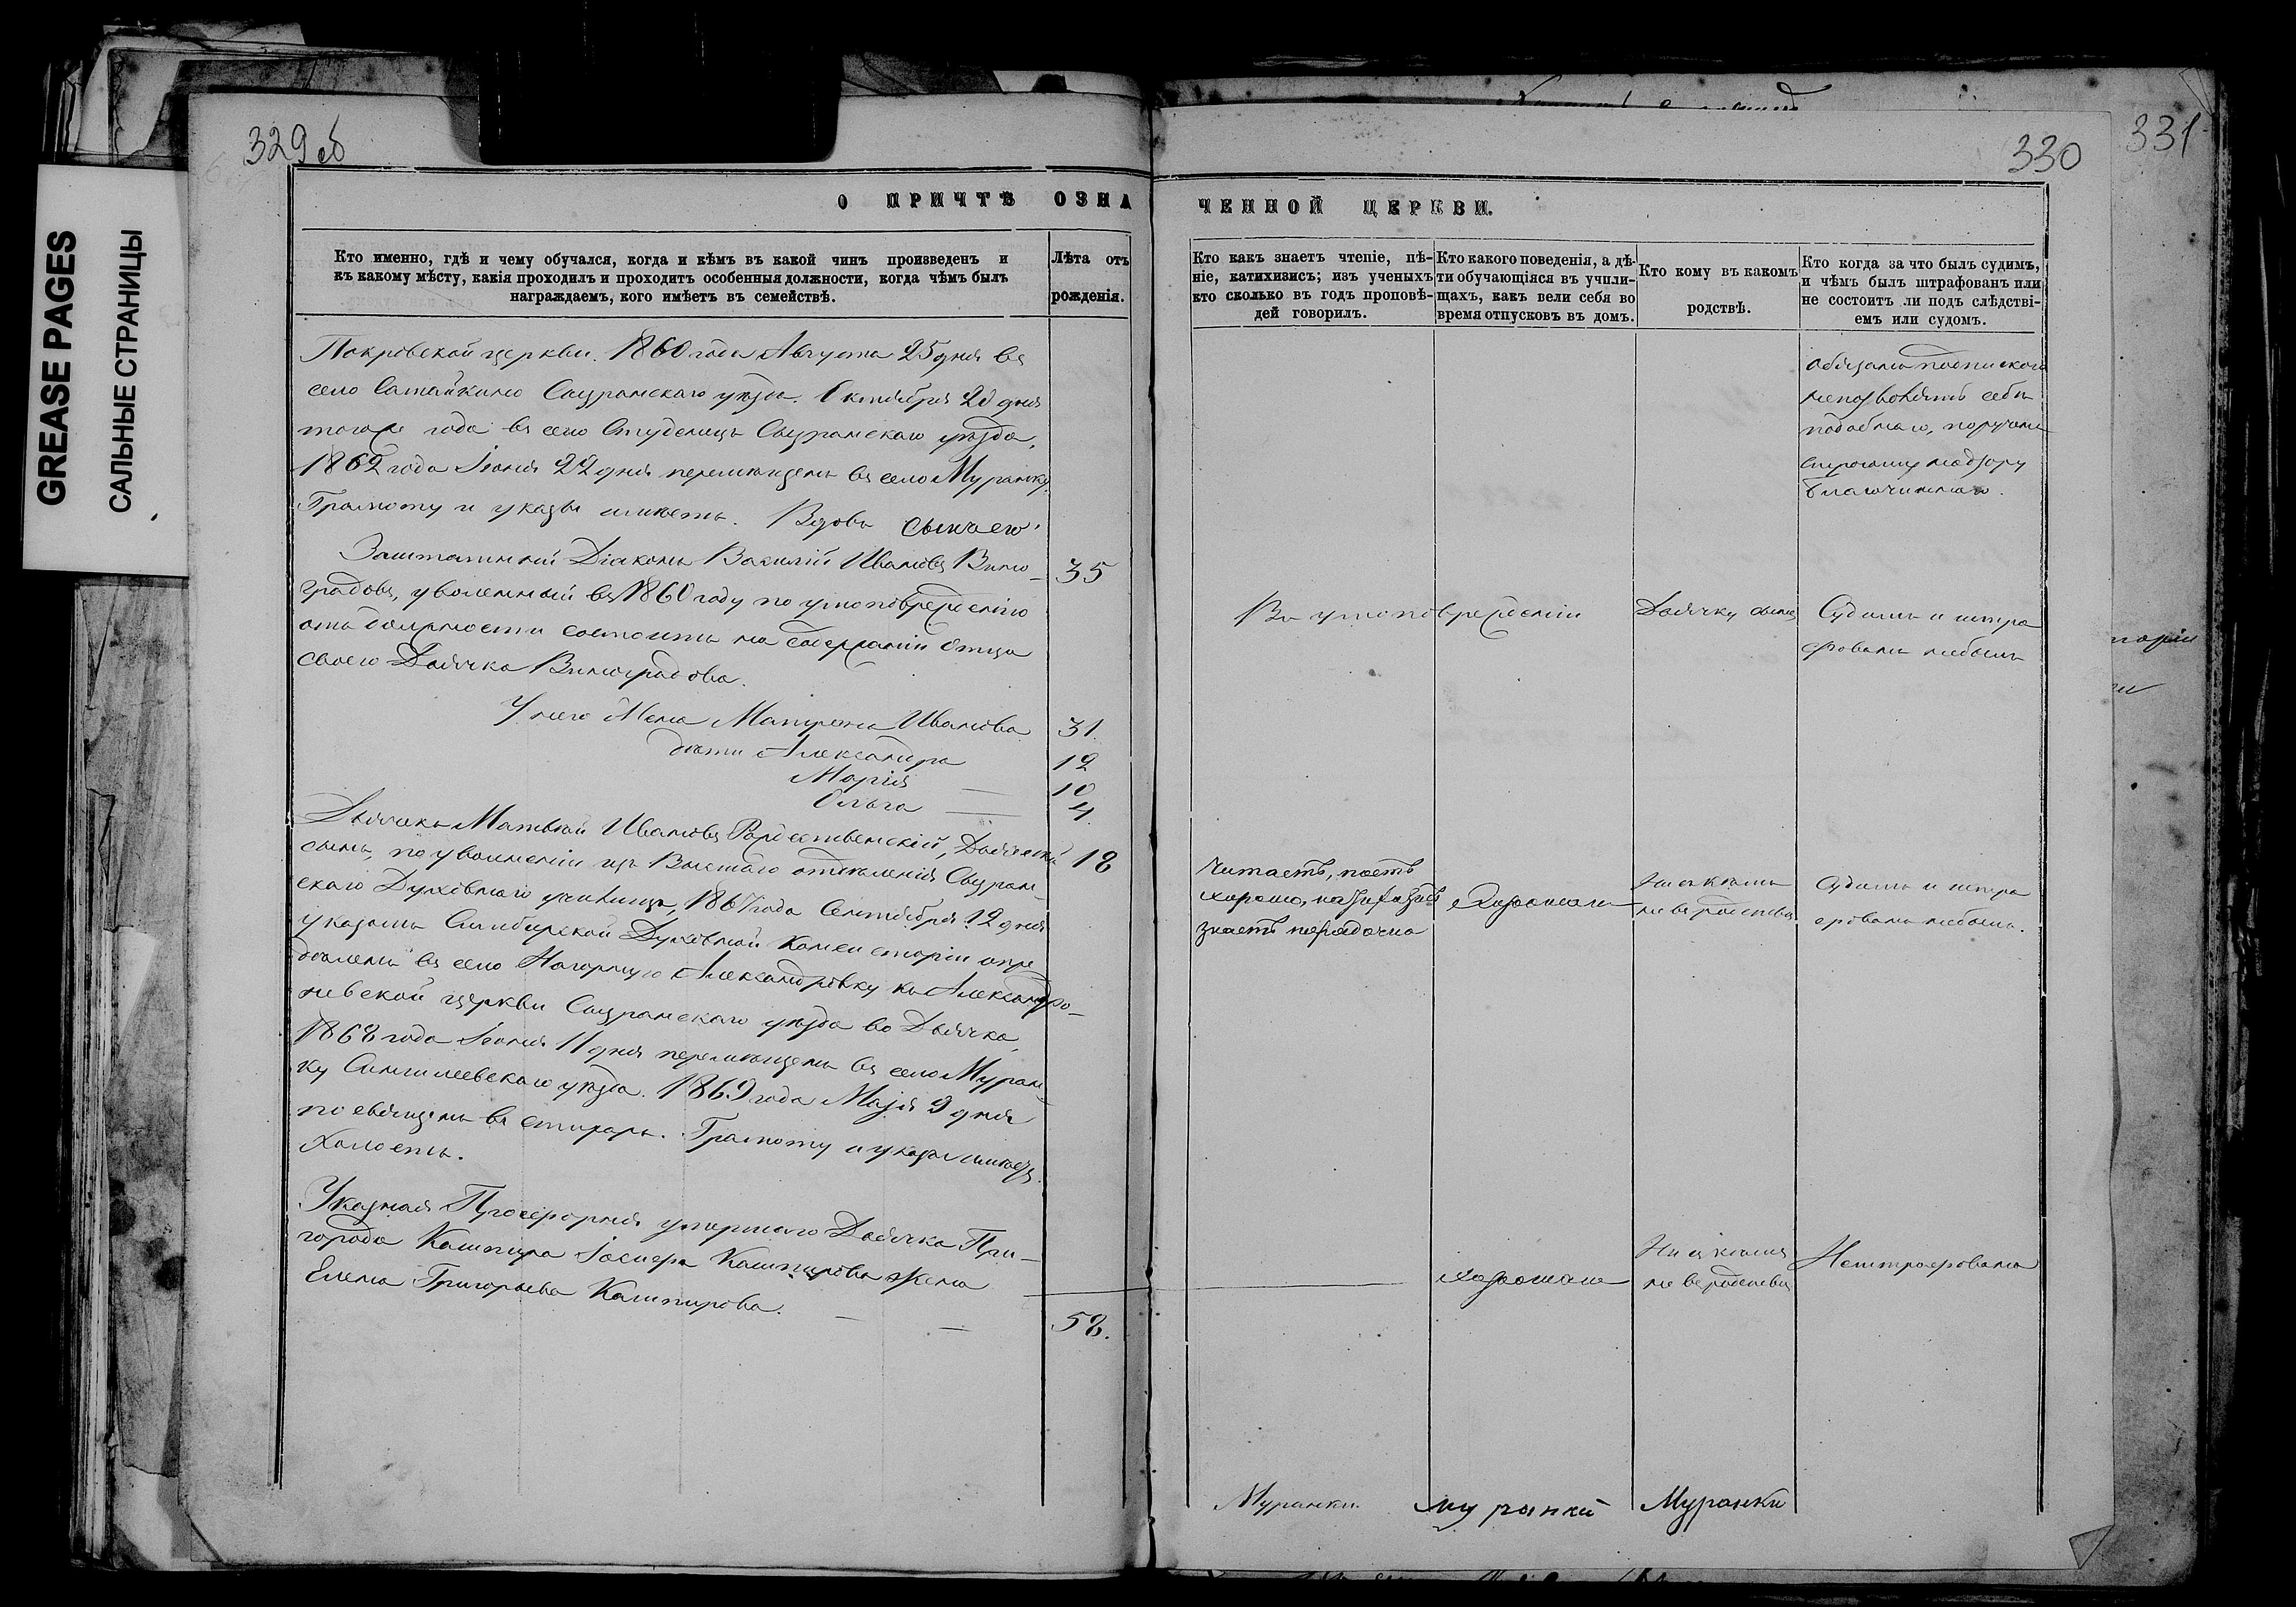 GREASE PAGES
САЛЬНЫЕ СТРАНИЦЫ
329об
О ПРИЧТѢ ОЗНА
Кто именно, гдѣ и чему обучался, когда и кѣмъ въ какой чинъ произведенъ и
къ какому мѣсту, какія проходилъ и проходитъ особенныя должности, когда чѣмъ былъ
награждаемъ, кого имѣетъ въ семействѣ.
Лѣта отъ
рожденія.
Покровской церкви. 1860 года Августа 25 дня въ
село Самайкино Сызранскаго уѣзда. Октября 20 дня
тогоже года въ село Студенецъ Сызранскаго уѣзда,
1862 года Іюня 22 дня перемѣщенъ въ село Муранку.
Грамоту и указы имѣетъ. Вдовъ сынъ его
Заштатный Діаконъ Василій Ивановъ Вино-
35
градовъ, уволенный въ 1860 году по умоповрежденію
отъ должности состоитъ на содержаніи отца
своего Дьячка Виноградова.
У него Жена Матрона Иванова
31.
дѣти Александра
12
Марія —
10
Ольга —
4.
Дьячекъ Матвѣй Ивановъ Рождественскій, Дьяческій
18
сынъ, по увольненіи изъ Высшаго отдѣленія Сызран-
скаго Духовнаго училища, 1867 года Сентября 12 дня
указомъ Симбирской Духовной Консисторіи опре
дѣленъ въ село Нагорную Александровку къ Александро-
невской церкви Сызранскаго уѣзда во Дьячка,
1868 года Іюня 11 дня перемѣщенъ въ село Муран-
ку Сенгилеевскаго уѣзда. 1869 года Маія 9 дня
посвященъ въ стихарь. Грамоту и указъ имѣетъ.
Холостъ.
Указная Просфорня умершаго Дьячка При-
города Кашпира Іосифа Кашпирова жена
Елена Григорьева Кашпирова. — —
58.
330
331
ЧЕННОЙ ЦЕРКВИ.
Кто какъ знаетъ чтеніе, пѣ-
ніе, катихизисъ; изъ ученыхъ
кто сколько въ годъ проповѣ-
дей говорилъ.
Кто какого поведенія, а дѣ-
ти обучающіяся въ учили-
щахъ, какъ вели себя во
время отпусковъ въ домъ.
Кто кому въ какомъ
родствѣ.
Кто когда за что былъ судимъ,
и чѣмъ былъ штрафованъ или
не состоитъ ли подъ слѣдствi-
емъ или судомъ.
обязанъ подпискою
непозволять себѣ
подобнаго, порученъ
строгому надзору
Благочиннаго.
Въ умоповрежденіи
Дьячку сынъ
Судимъ и штра
фованъ небылъ
Читаетъ, поетъ
хорошо, катихизисъ
знаетъ порядочно
Хорошаго
Ни съ кѣмъ
не въ родствѣ
Судимъ и штра
фованъ небылъ.
Хорошаго
Ни съ кѣмъ
не въ родствѣ
Нештрафована
Муранки
Муранки
Муранки